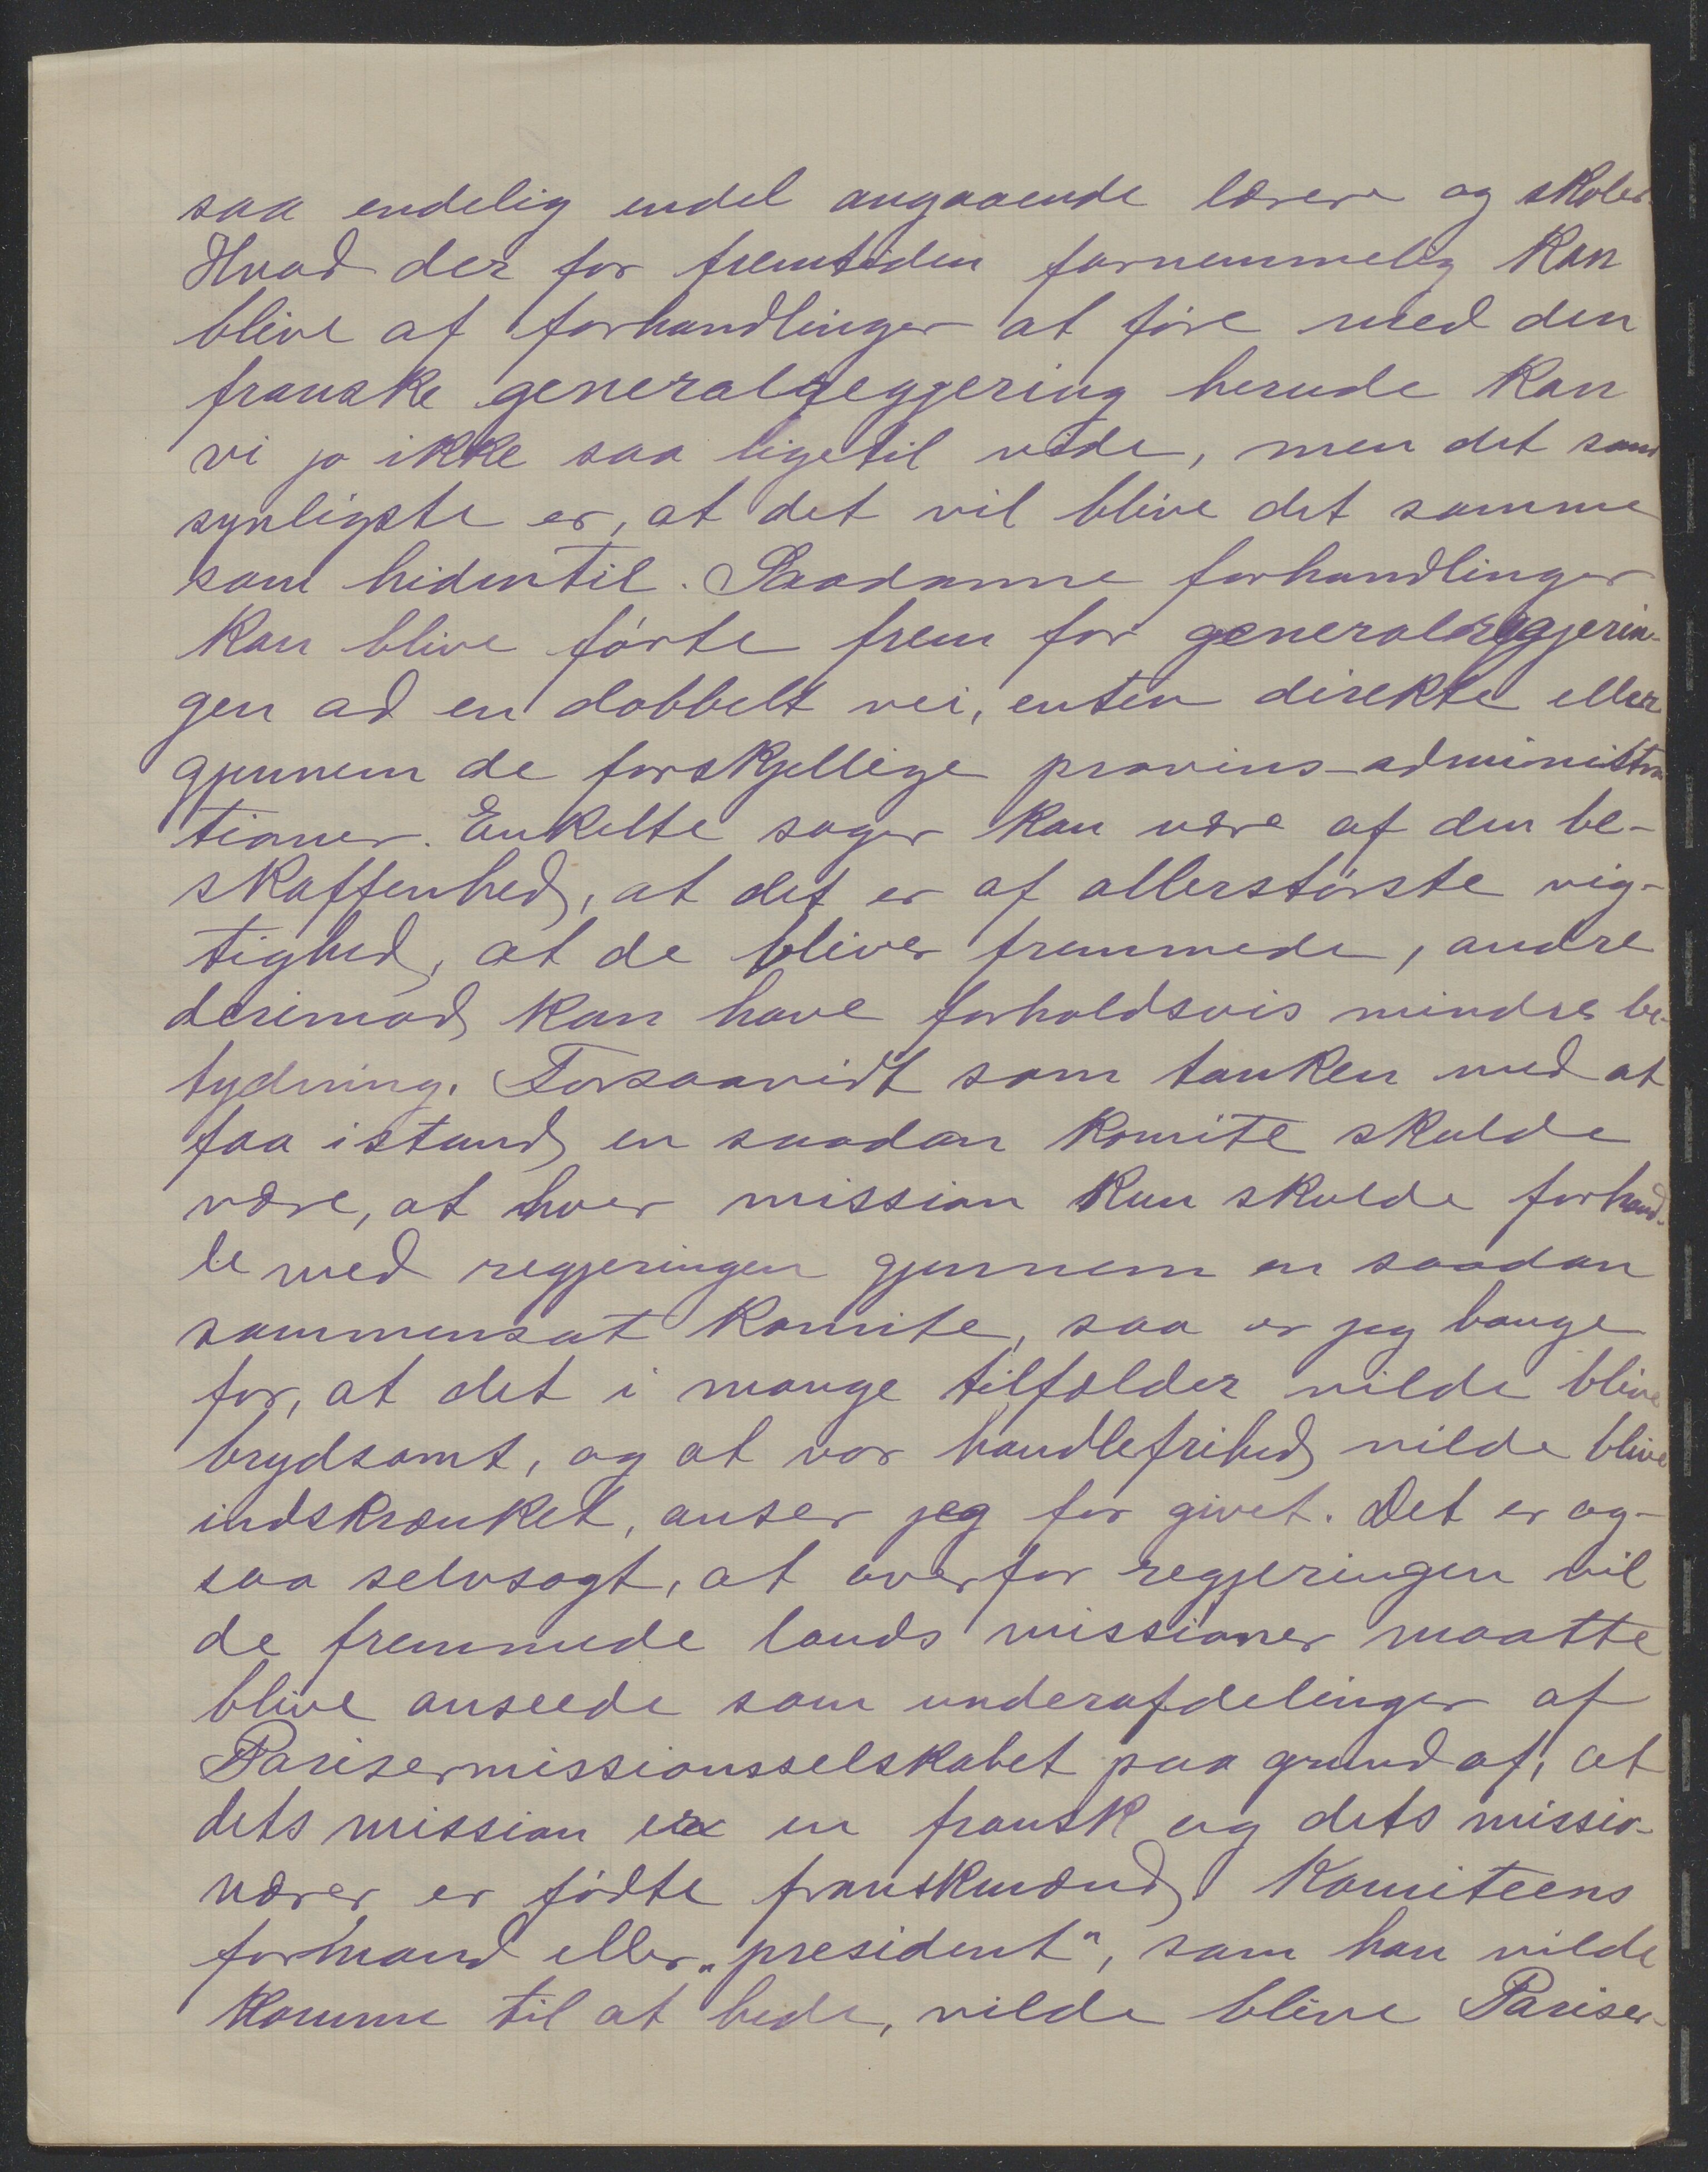 saa endelig endel angaaende lærere og skoler.
Hvad der for fremtiden fornemmelig kan
blive af forhandlinger at føre med den
franske generalregjering herude kan
vi jo ikke saa ligetil vide, men det sand
synligste er, at det vil blive det samme
som hidentil. Saadanne forhandlinger
kan blive førte frem for generalregjerin-
gen ad en dobbelt vei, enten direkte eller
gjennem de forskjellige provins-administra
tioner. Enkelte sager kan være af den be-
skaffenhed, at det er af allerstørste vig-
tighed, at de bliver fremmede, andre
derimod kan have forholdsvis mindre be-
tydning. Forsaavidt som tanken med at
faa istand en saadan komite skulde
være, at hver mission kun skulde forhand-
le med regjeringen gjennem en saadan
sammensat komite, saa er jeg bange
for, at det i mange tilfælder vilde blive
brydsomt, og at vor handlefrihed vilde blive
indskrænket, anser jeg for givet. Det er og-
saa selvsagt, at overfor regjeringen vil
de fremmede lands missioner maatte
blive anseede som underafdelinger af
Parisermissionsselskabet paa grund af, at
dets mission er en fransk og dets missio-
nærer er fødte franskmænd. Komiteens
formand eller „president", som han vilde
komme til at hede, vilde blive Pariser-